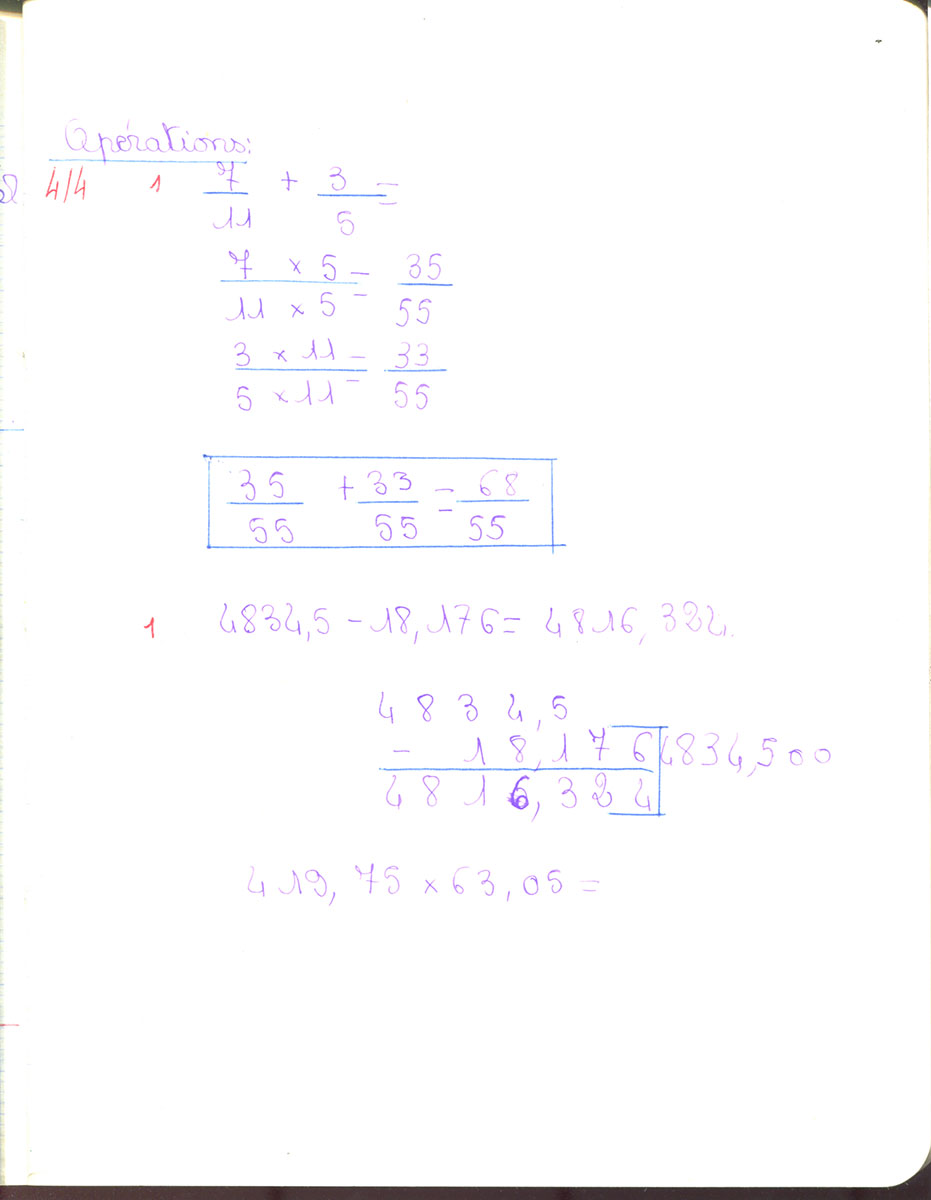 Opérations:
4/4 1 7/11 + 3/5 =
7 × 5 / 11 × 5 = 35/55
3 × 11 / 5 × 11 = 33/55
35/55 + 33/55 = 68/55
1 4834,5 - 18,176 = 4816,324.
4834,5
- 18,176 4834,500
4816,324
419,75 × 63,05 =